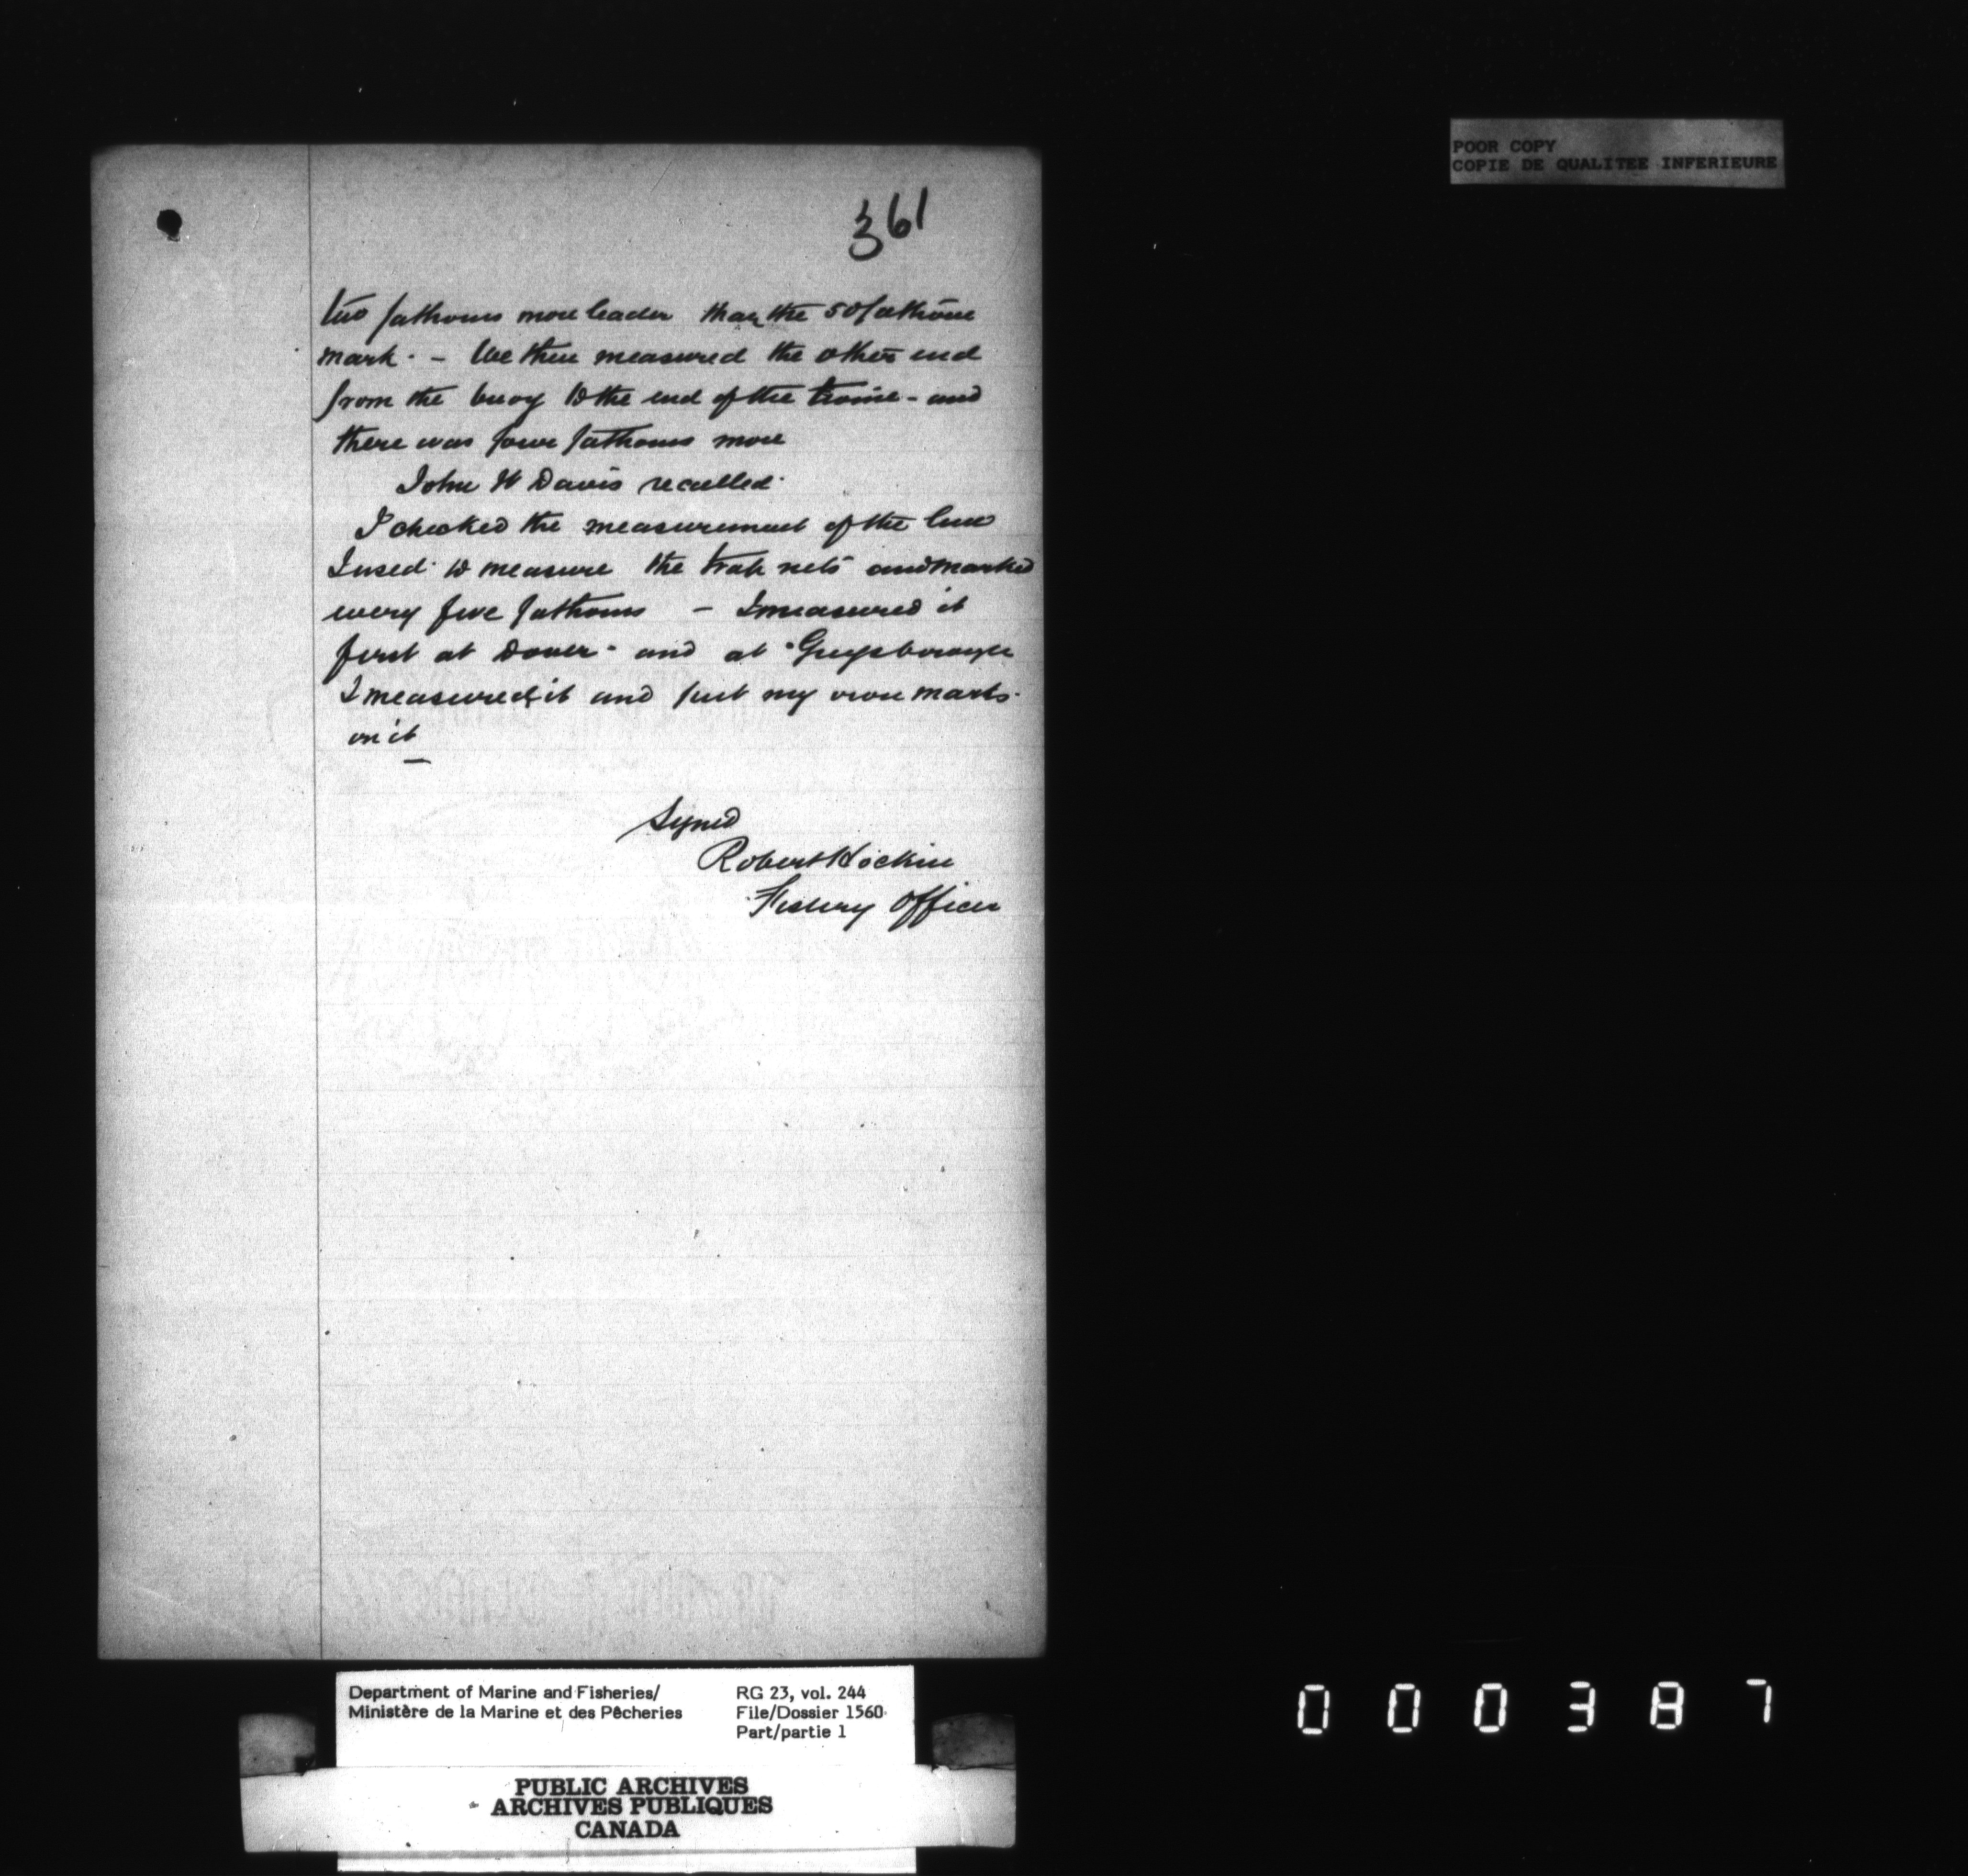 POOR COPY
COPIE DE QUALITEE INFERIEURE
361
two fathoms more leader than the 50 fathom
mark. - We then measured the other end
from the buoy to the end of the twine - and
there was four fathoms more
John W Davis recalled.
I checked the measurement of the line
I used to measure the trap nets and marked
every five fathoms - I measured it
first at Dover - and at Guysborough
I measured it and put my own marks
on it
Signed
Robert Hockin
Fishery Officer
Department of Marine and Fisheries/
Ministère de la Marine et des Pêcheries
RG 23, vol. 244
File/Dossier 1560
Part/partie 1
PUBLIC ARCHIVES
ARCHIVES PUBLIQUES
CANADA
000387